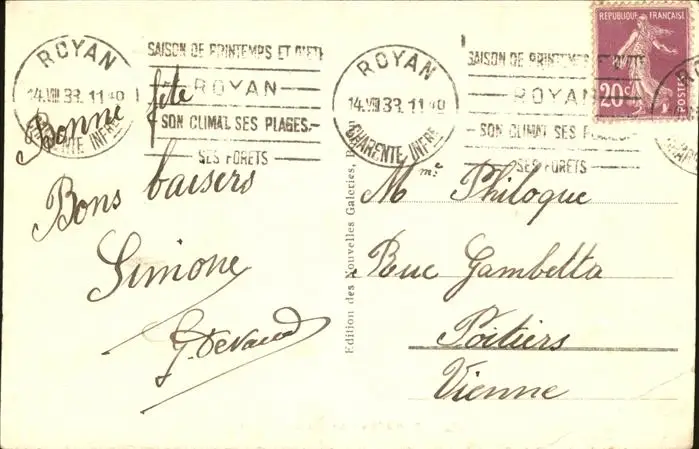 ROYAN
14.VIII 33. 11 40
CHARENTE INFRE
SAISON DE PRINTEMPS ET D'ÉTÉ
ROYAN
SON CLIMAT, SES PLAGES,
SES FORETS
ROYAN
14.VIII 33. 11 40
CHARENTE INFRE
SAISON DE PRINTEMPS
ROYAN
SON CLIMAT, SES PLAGES
SES FORETS
REPUBLIQUE FRANÇAISE
20c
POSTES
Bonne fête
Bons baisers
Simone
G. Devaud
Edition des Nouvelles Galeries,
M me
Philoque
Rue Gambetta
Poitiers
Vienne